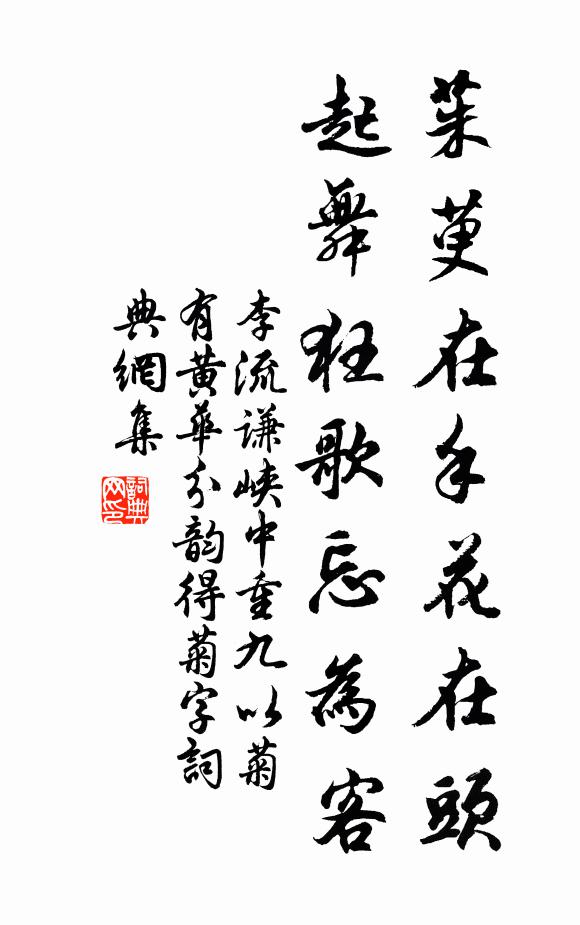 茱萸在手花在頭
起舞狂歌忘為客
李流謙峡中重九以菊
有黃華分韵得菊字詞
典網集
詞典
网印